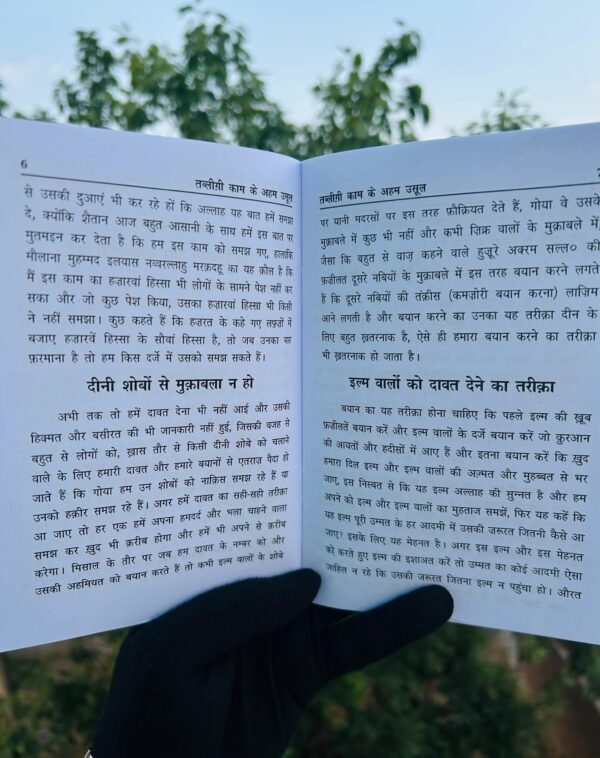 6
तब्लीग़ी काम के अहम उसूल
से उसकी दुआएं भी कर रहे हों कि अल्लाह यह बात हमें समझा
दे, क्योंकि शैतान आज बहुत आसानी के साथ हमें इस बात पर
मुतमइन कर देता है कि हम इस काम को समझ गए, हालांकि
मौलाना मुहम्मद इलयास नव्वरल्लाहु मरक़दहू का यह क़ौल है कि
मैं इस काम का हज़ारवां हिस्सा भी लोगों के सामने पेश नहीं कर
सका और जो कुछ पेश किया, उसका हज़ारवां हिस्सा भी किसी
ने नहीं समझा। कुछ कहते हैं कि हज़रत के कहे गए लफ़्ज़ों में
बजाए हज़ारवें हिस्सा के सौवां हिस्सा है, तो जब उनका यह
फ़रमाना है तो हम किस दर्जे में उसको समझ सकते हैं।
दीनी शोबों से मुक़ाबला न हो
अभी तक तो हमें दावत देना भी नहीं आई और उसकी
हिक्मत और बसीरत की भी जानकारी नहीं हुई, जिसकी वजह से
बहुत से लोगों को, ख़ास तौर से किसी दीनी शोबे को चलाने
वाले के लिए हमारी दावत और हमारे बयानों से एतराज़ पैदा हो
जाते हैं कि गोया हम उन शोबों को नाक़िस समझ रहे हैं या
उनको हक़ीर समझ रहे हैं। अगर हमें दावत का सही-सही तरीक़ा
आ जाए तो हर एक हमें अपना हमदर्द और भला चाहने वाला
समझ कर ख़ुद भी क़रीब होगा और हमें भी अपने से क़रीब
करेगा। मिसाल के तौर पर जब हम दावत के नम्बर को और
उसकी अहमियत को बयान करते हैं तो कभी इल्म वालों के शोबे
तब्लीग़ी काम के अहम उसूल
पर यानी मदरसों पर इस तरह फ़ौक़ियत देते हैं, गोया वे उसके
मुक़ाबले में कुछ भी नहीं और कभी ज़िक्र वालों के मुक़ाबले में,
जैसा कि बहुत से वाज़ कहने वाले हुज़ूरे अकरम सल्ल० की
फ़ज़ीलत दूसरे नबियों के मुक़ाबले में इस तरह बयान करने लगते
हैं कि दूसरे नबियों की तंक़ीस (कमज़ोरी बयान करना) लाज़िम
आने लगती है और बयान करने का उनका यह तरीक़ा दीन के
लिए बहुत ख़तरनाक है, ऐसे ही हमारा बयान करने का तरीक़ा
भी ख़तरनाक हो जाता है।
इल्म वालों को दावत देने का तरीक़ा
बयान का यह तरीक़ा होना चाहिए कि पहले इल्म की ख़ूब
फ़ज़ीलतें बयान करें और इल्म वालों के दर्जे बयान करें जो क़ुरआन
की आयतों और हदीसों में आए हैं और इतना बयान करें कि ख़ुद
हमारा दिल इल्म और इल्म वालों की अज़्मत और मुहब्बत से भर
जाए, इस निस्बत से कि यह इल्म अल्लाह की सुन्नत है और हम
अपने को इल्म और इल्म वालों का मुहताज समझें, फिर यह कहें कि
यह इल्म पूरी उम्मत के हर आदमी में उसकी ज़रूरत जितनी कैसे आ
जाए? इसके लिए यह मेहनत है। अगर इस इल्म और इस मेहनत
को करते हुए इल्म की इशाअत करें तो उम्मत का कोई आदमी ऐसा
जाहिल न रहे कि उसकी ज़रूरत जितना इल्म न पहुंचा हो। औरत